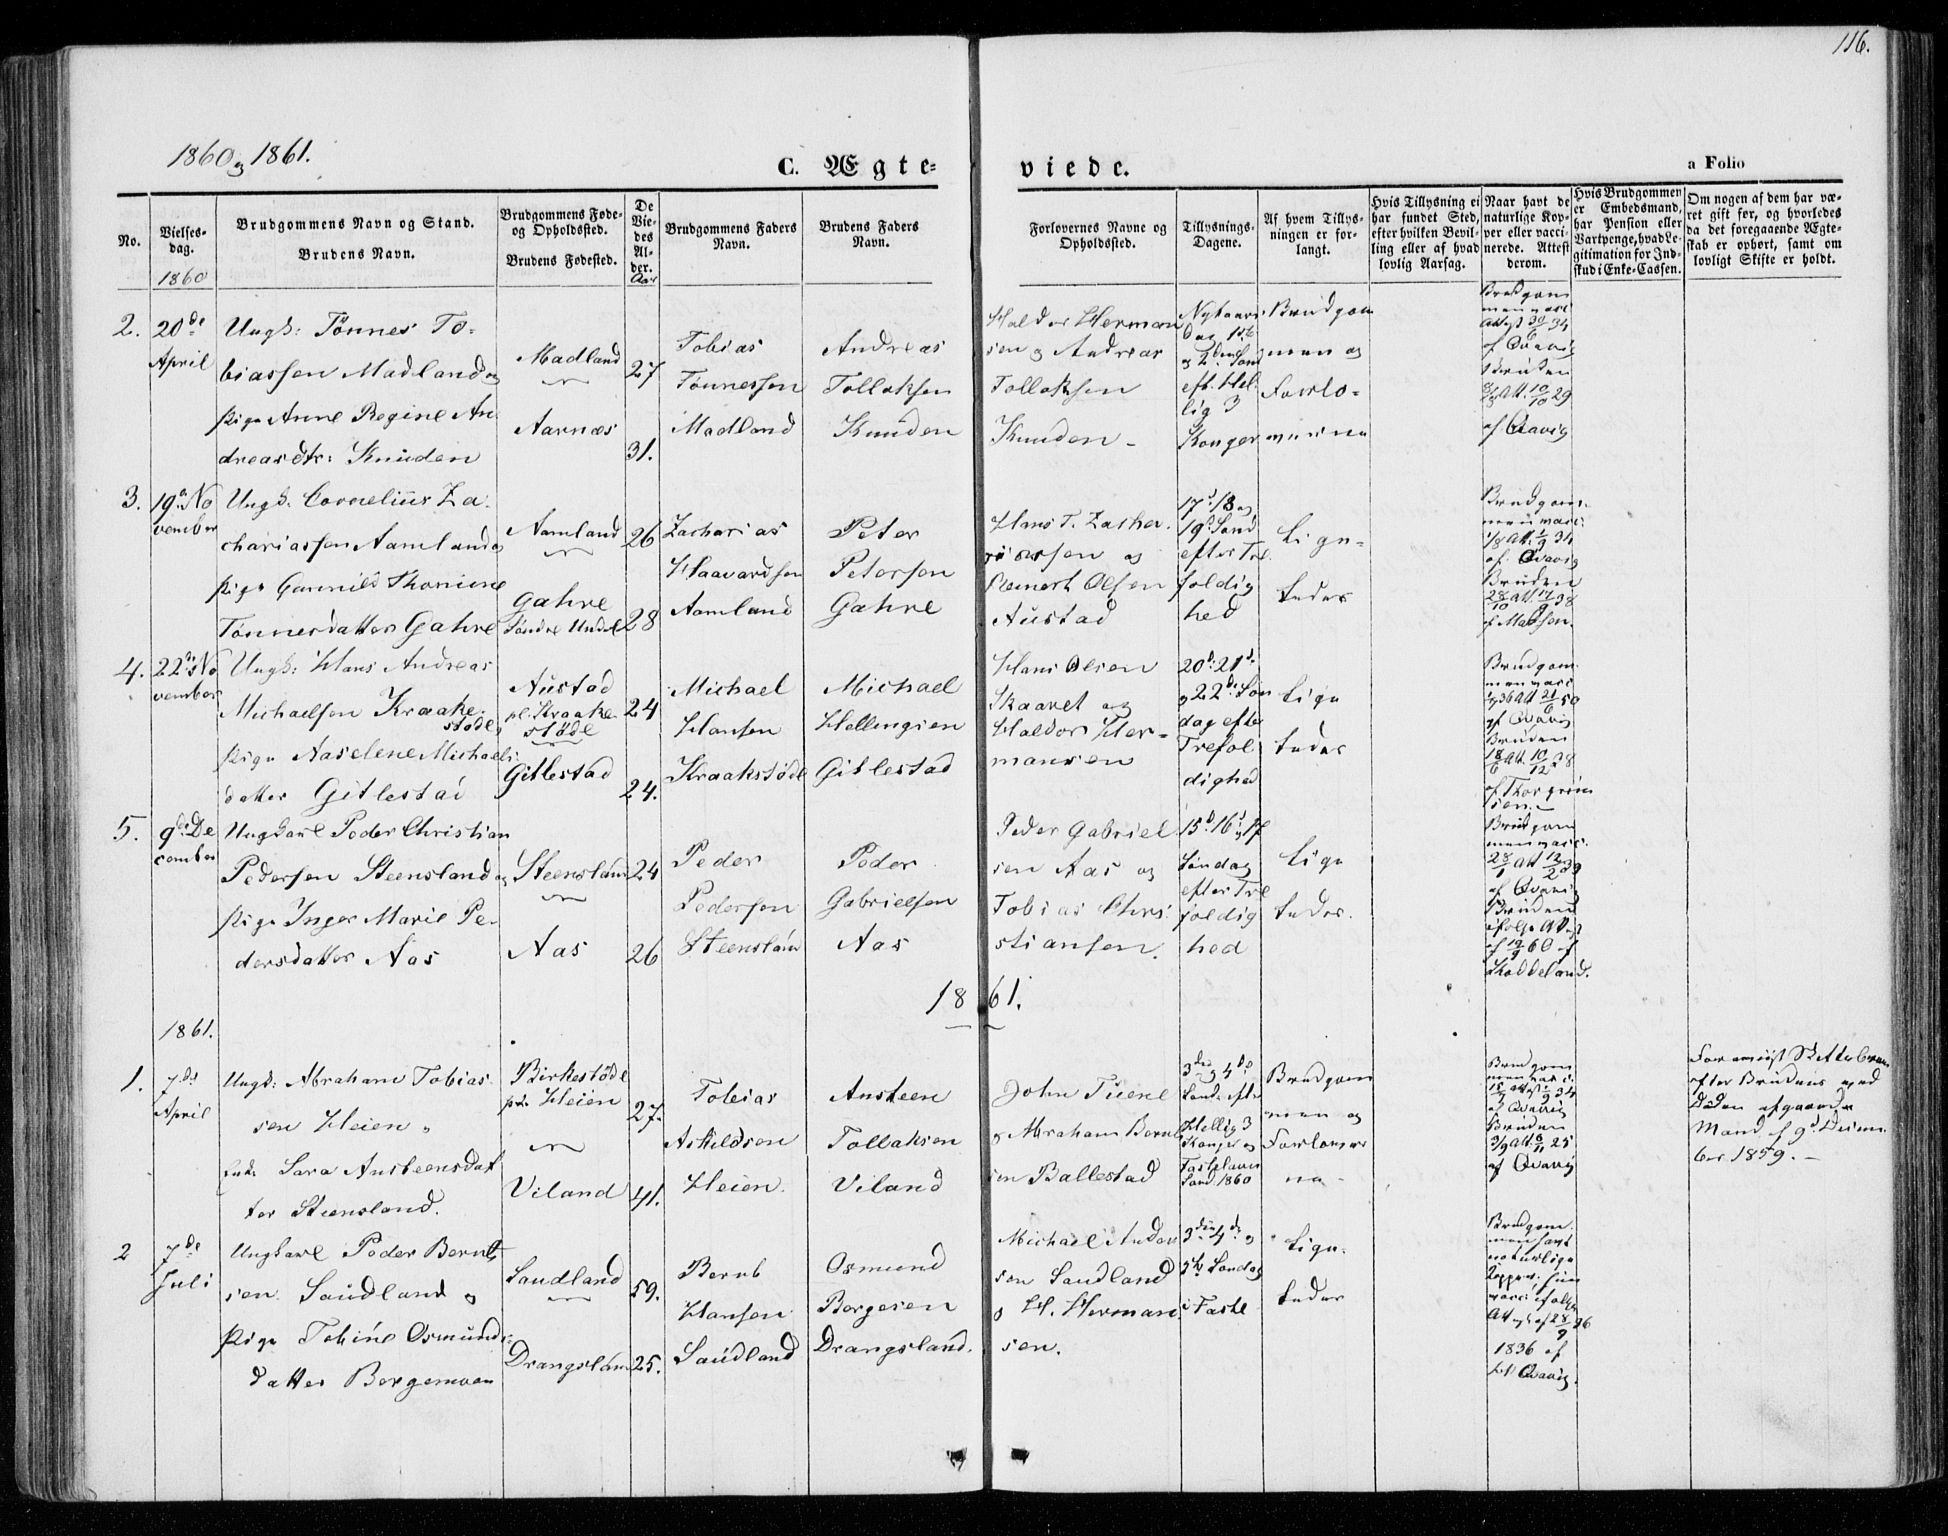 116.
1860 og 1861.
C. Ægteviede.
a Folio
No.
Vielsesdag.
1860
Brudgommens Navn og Stand.
Brudens Navn.
Brudgommens Føde- og Opholdsted.
Brudens Fødested.
De Viedes Alder.
Aar
Brudgommens Faders Navn.
Brudens Faders Navn.
Forlovernes Navne og Opholdsted.
Tillysnings-Dagene.
Af hvem Tillysningen er forlangt.
Hvis Tillysning ei har fundet Sted, efter hvilken Bevilling eller af hvad lovlig Aarsag.
Naar havt de naturlige Kopper eller vaccinerede. Attest derom.
Hvis Brudgommen er Embedsmand, har Pension eller Vartpenge, hvad Legitimation for Indskud i Enke-Cassen.
Om nogen af dem har været gift før, og hvorledes da det foregaaende Ægteskab er ophørt, samt om lovligt Skifte er holdt.
2.
20de
April
Ungk: Tönnes To-
biassen Madland og
Pige Anne Regine An
dreasdtr: Knuden
Madland
Aarnæs
27
31.
Tobias
Tönnessen
Madland
Andreas
Tollaksen
Knuden
Haldor Herman
sen og Andreas
Tollaksen
Knuden
Nytaars
Dag 1ste
og 2den Sönd
eft. Hel.
lig 3
Konger
Brudgom
men og
Forlo-
verne
Brudgom
men vacc
Attest 30/6 34
af Qvavig
Bruden
Att. 10/10 29
af Qvavig
3.
19de No
vember
Ungk. Cornelius Za.
chariassen Aamland og
Pige Gunnild Thonine
Tönnesdatter Gahre
Aamland
Gahre
Söndre Undal
26
28
Zacharias
Haavardsen
Aamland
Peter
Petersen
Gahre
Hans T. Zacha.
riassen og
Reinert Olsen
Austad
17d 18 og
19d Sönd
efter Tre
foldig
hed
Lige-
ledes
Brudgom-
men vacc:
af. Qvavig
Bruden
28/10 Att. 38
af Madsen.
4.
22de No
vember
Ungk: Hans Andreas
Michaelsen Kraake-
stöde,
Pige Aaselene Michaels
datter Gitlestad
Austad
pl. Kraake
stöde
Gitlestad
24
24.
Michael
Hansen
Kraakstöde
Michael
Hellingsen
Gitlestad
Hans Olsen
Skaaret og
Haldor Her-
mansen
20d: 21d
og 22de Sön
dag efter
Trefol
dighed
Lige
ledes
Brudgom
men vacc
af Qvavig
Bruden
18/6 Att 10/12 38
af Thorgrim
sen.
5.
9de De
cember
Ungkarl Peder Christian
Pedersen Steensland og
Pige Inger Marie Pe-
dersdatter Aas
Steensland
Aas
24
26
Peder
Pedersen
Steensland
Peder
Gabrielsen
Aas
Peder Gabriel
sen Aas og
Tobias Chri
stiansen.
15d 16d og 17
Söndag
efter Tre
foldig
hed
Lige
ledes.
Brudgom
men vacc.
28/1 Att 12/2 39
af Qvavig
Bruden
ifölge Attest
af 19/9 60 af
Kobbeland.
1861.
1861.
1.
7de
April
Ungk: Abraham Tobias
sen Heien
Enke Sara Ansteensdat
ter Steensland.
Birkestöde
pl. Heien
Viland
27.
41.
Tobias
Askildsen
Heien.
Ansteen
Tollaksen
Viland
John Tuene
og Abraham Bernt
sen Ballestad
3die og 4de
Sönd. efter
Hellig 3
Konger og
Fastelavns
Sönd. 1860
Brudgom
men og
Forlover
ne
Brudgom
men vacc.
af Qvavig
Bruden
3/9 Att. 6/11 25
af Qvavig
Foreviist Skiftebrev
efter Brudens ved
Döden afgaaede
Mand af 9d Decem
ber 1859.
2
7de
Juli
Ungkarl Peder Bernt
sen Saudland og
Pige Tobine Osmunds-
datter Borgemoen
Saudland
Drangsland
59.
25.
Bernt
Hansen
Saudland
Osmund
Borgesen
Drangsland.
Michael Ander
sen Saudland
og H. Herman.
sen.
3die 4de og
5te Söndag
i Faste
Lige-
ledes
Brudgom.
men havt
naturlige
Kopper. Hun
vacc. ifölge
Attest af 28/9 36
1836 af
Qvavig.